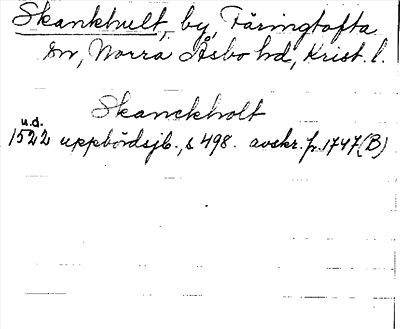 Skankhult, by, Färingtofta
sn, Norra Åsbo hd, Krist. l.
Skanckholt
u.d.
1522 uppbördsjb., s 498. avskr. fr. 1747 (B)